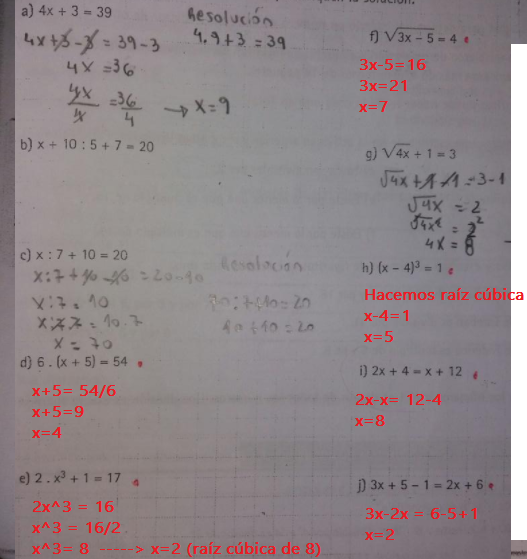 a) 4x + 3 = 39
Resolución
4x+3-3 = 39-3
4.9+3=39
4x=36
4x/x = 36/4 → x=9
b) x + 10 : 5 + 7 = 20
c) x : 7 + 10 = 20
Resolución
x:7+10-10 = 20-10
x:7=10
70:7+10=20
x:7.7=10.7
10+10=20
x=70
d) 6 . (x + 5) = 54
x+5= 54/6
x+5=9
x=4
e) 2 . x³ + 1 = 17
2x^3 = 16
x^3 = 16/2
x^3= 8 -----> x=2 (raíz cúbica de 8)
f) √3x – 5 = 4
3x-5=16
3x=21
x=7
g) √4x + 1 = 3
√4x+1-1=3-1
√4x = 2
√4x² = 2²
4x = 8
h) (x – 4)³ = 1
Hacemos raíz cúbica
x-4=1
x=5
i) 2x + 4 = x + 12
2x-x= 12-4
x=8
j) 3x + 5 – 1 = 2x + 6
3x-2x = 6-5+1
x=2